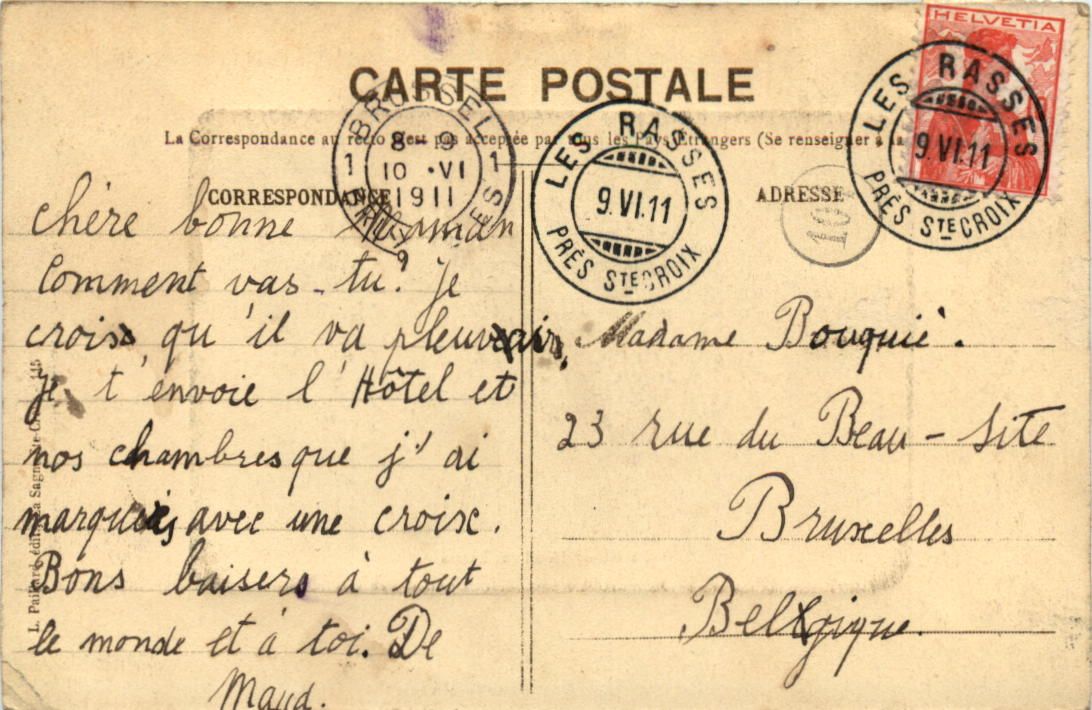 HELVETIA
CARTE POSTALE
La Correspondance au recto n'est pas acceptée par tous les Pays Etrangers (Se renseigner à la
CORRESPONDANCE
ADRESSE
BRUXELLES
1 1
8 - 9
10 · VI
1911
BRUSSEL
LES RASSES
9. VI. 11
PRÈS STE CROIX
LES RASSES
9. VI. 11
PRÈS STE CROIX
10
chère bonne maman
Comment vas-tu? Je
crois, qu'il va pleuvoir,
Je t'envoie l'Hôtel et
nos chambres que j'ai
marquées avec une croix.
Bons baisers à tout
le monde et à toi. De
Maud.
Madame Bouquié.
23 rue du Beau-Site
Bruxelles
Belgique.